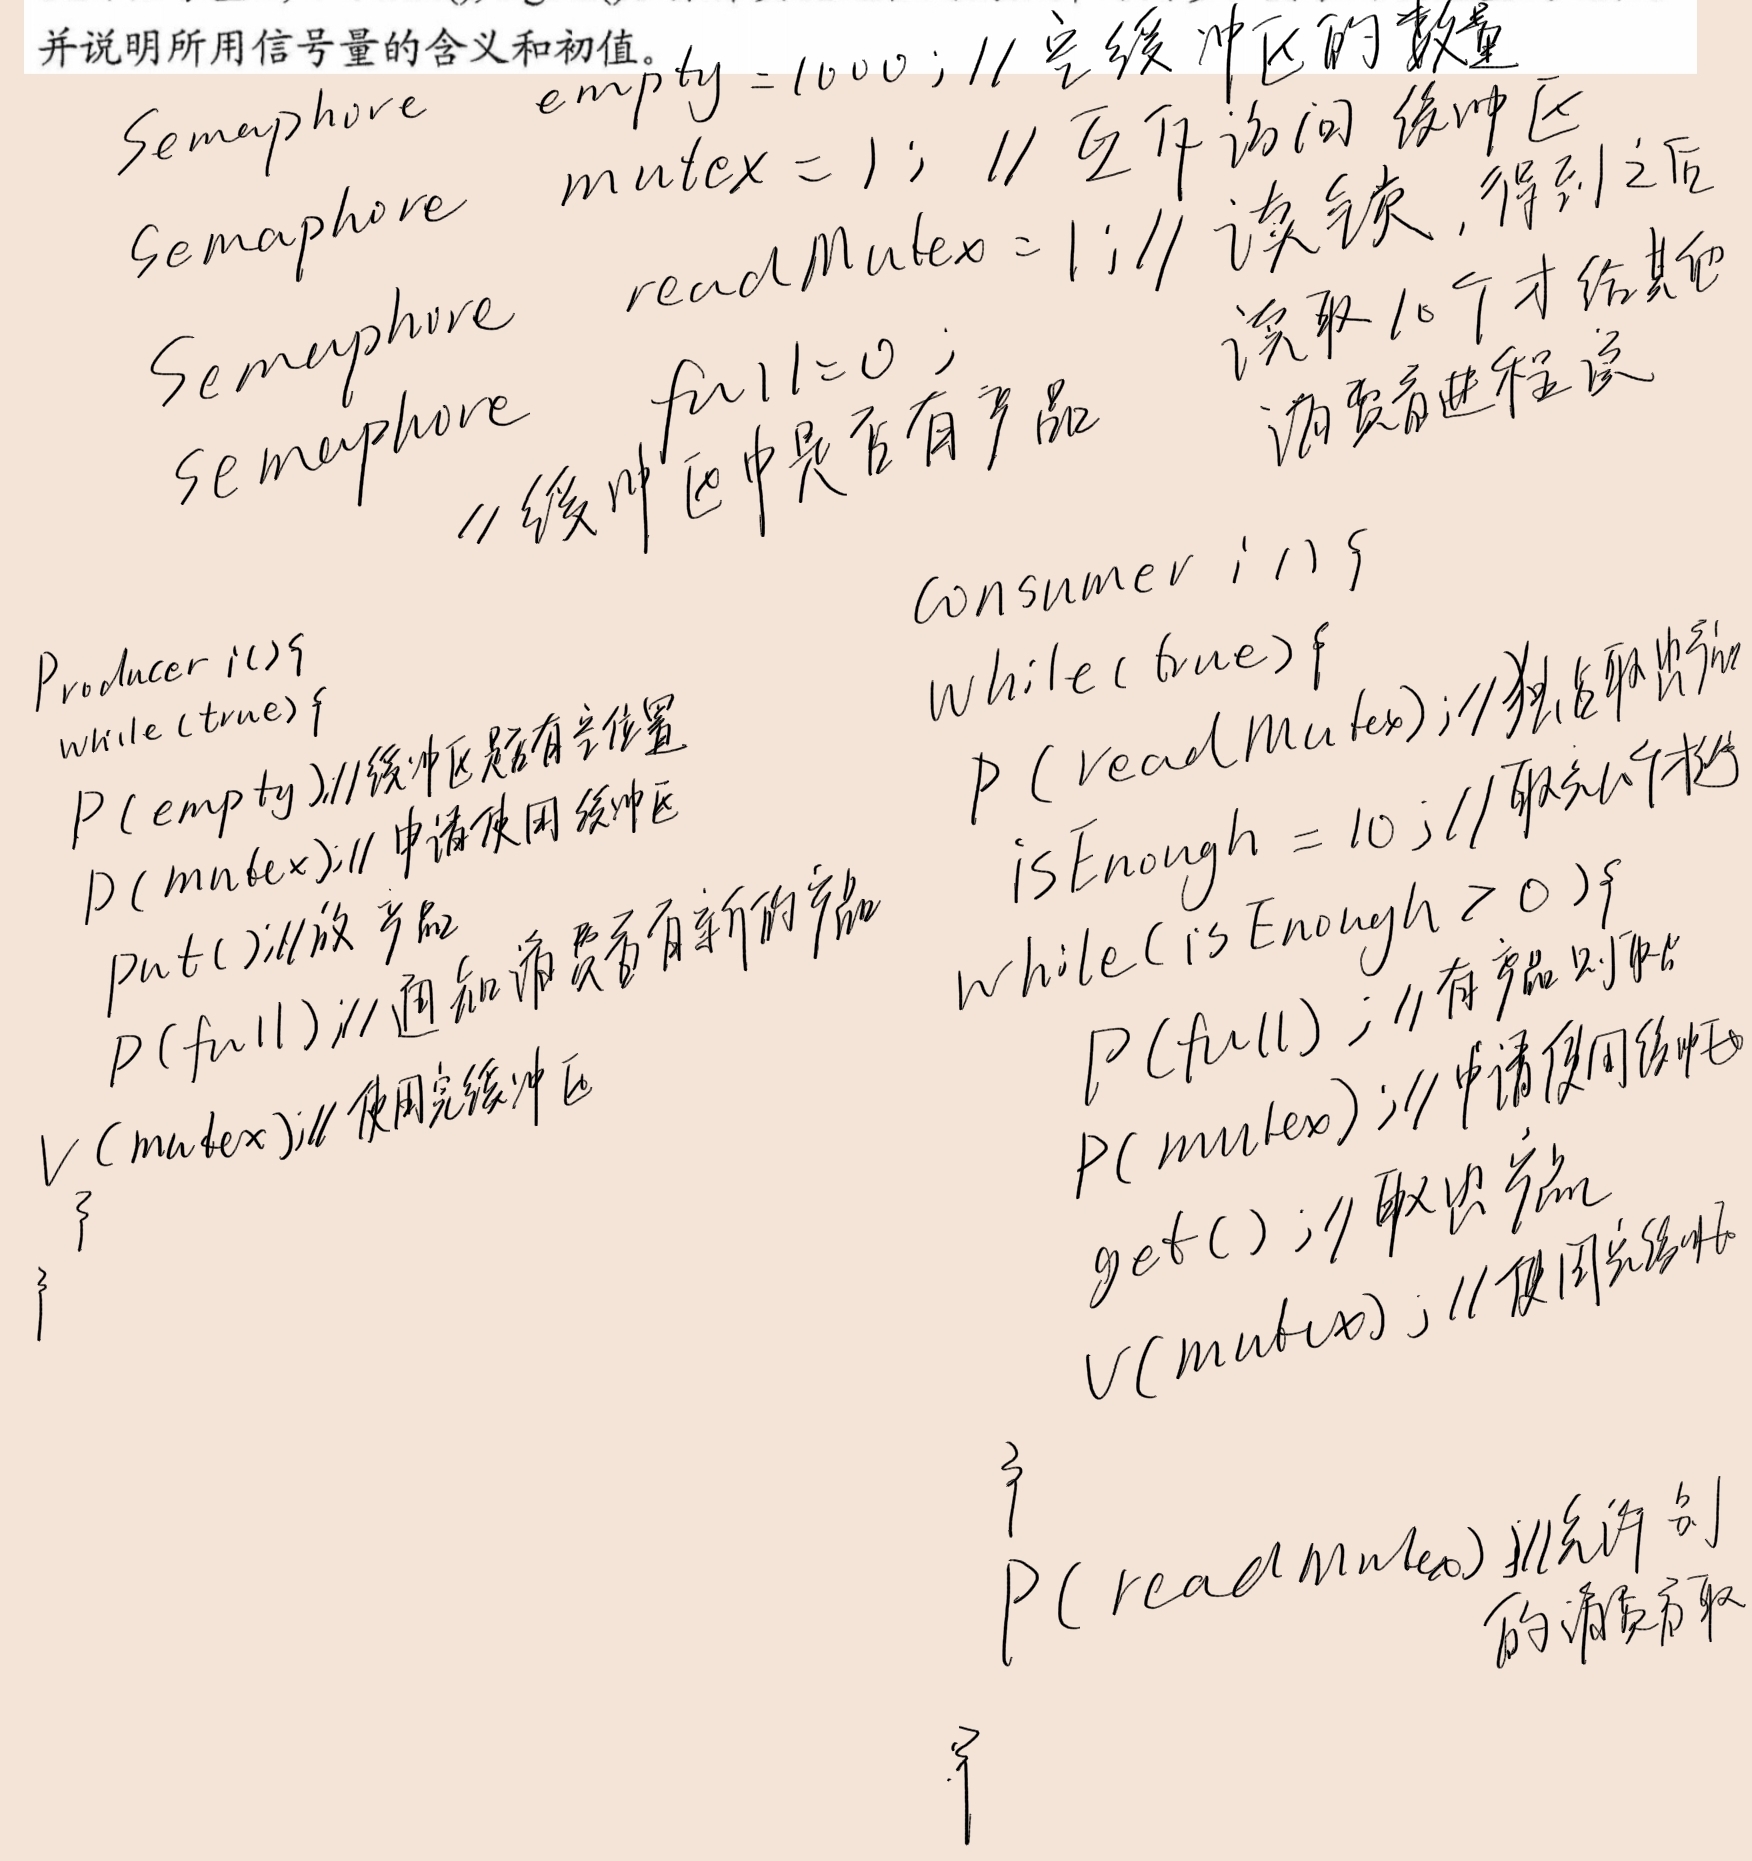 并说明所用信号量的含义和初值。
Semaphore empty = 1000; // 空缓冲区的数量
Semaphore mutex = 1; // 互斥访问缓冲区
Semaphore readMutex = 1; // 读锁，得到之后
读取10个才给其他
消费者进程读
Semaphore full = 0;
// 缓冲区中是否有产品
Producer i(){
while(true){
P(empty);// 缓冲区是否有空位置
P(mutex);// 申请使用缓冲区
put();// 放产品
P(full);// 通知消费者有新的产品
V(mutex);// 使用完缓冲区
}
}
Consumer i(){
while(true){
P(readMutex);// 独占取出产品
isEnough = 10;// 取完10个才
while(isEnough > 0){
P(full);// 有产品则取
P(mutex);// 申请使用缓冲区
get();// 取出产品
V(mutex);// 使用完缓冲区
}
P(readMutex);// 允许别
的消费者取
}